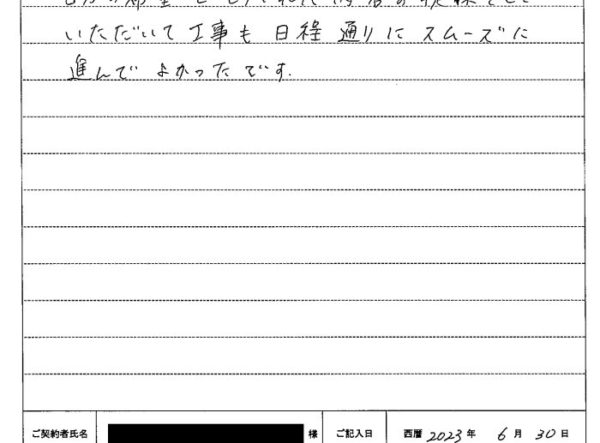 いただいて工事も日程通りにスムーズに
進んでよかったです.
ご契約者氏名 様 ご記入日 西暦 2023 年 6 月 30 日